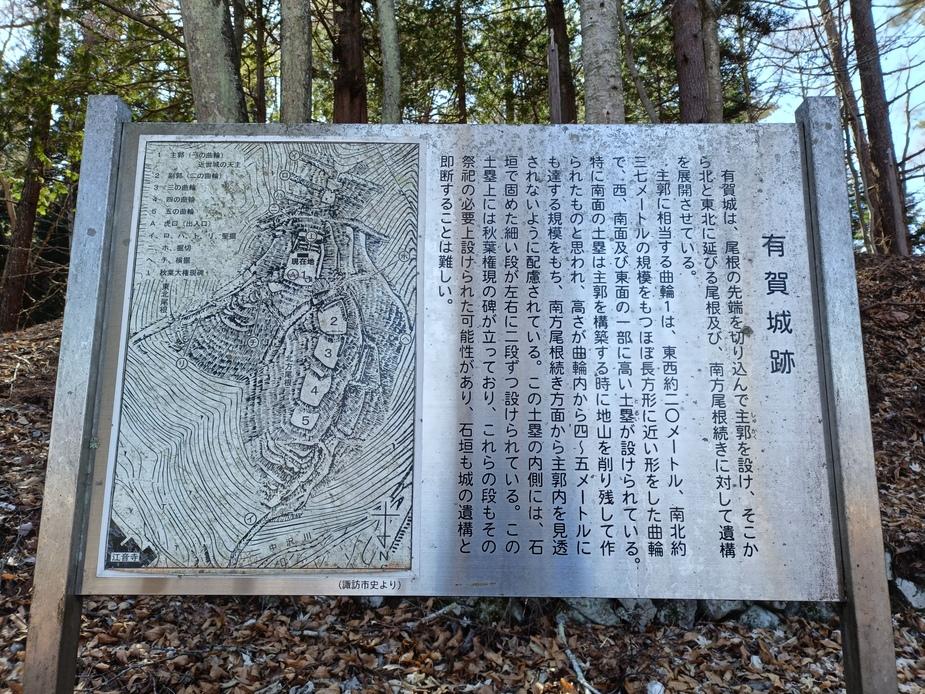 有賀城跡
有賀城は、尾根の先端を切り込んで主郭を設け、そこか
ら北と東北に延びる尾根及び、南方尾根続きに対して遺構
を展開させている。
主郭に相当する曲輪1は、東西約二〇メートル、南北約
三七メートルの規模をもつほぼ長方形に近い形をした曲輪
で、西、南面及び東面の一部に高い土塁が設けられている。
特に南面の土塁は主郭を構築する時に地山を削り残して作
られたものと思われ、高さが曲輪内から四～五メートルに
も達する規模をもち、南方尾根続き方面から主郭内を見透
されないように配慮されている。この土塁の内側には、石
垣で固めた細い段が左右に二段ずつ設けられている。この
土塁上には秋葉権現の碑が立っており、これらの段もその
祭祀の必要上設けられた可能性があり、石垣も城の遺構と
即断することは難しい。
1 主郭(一の曲輪)
近世城の天主
2 副郭(二の曲輪)
3 三の曲輪
4 四の曲輪
5 五の曲輪
A 虎口(出入口)
イ、ロ、ハ、ト、リ、竪堀
ニ、ホ、堀切
ヘ、チ、横堀
1 秋葉大権現碑
東北尾根
現在地
1
2
3
4
5
南方尾根
中沢川
N
江音寺
(諏訪市史より)